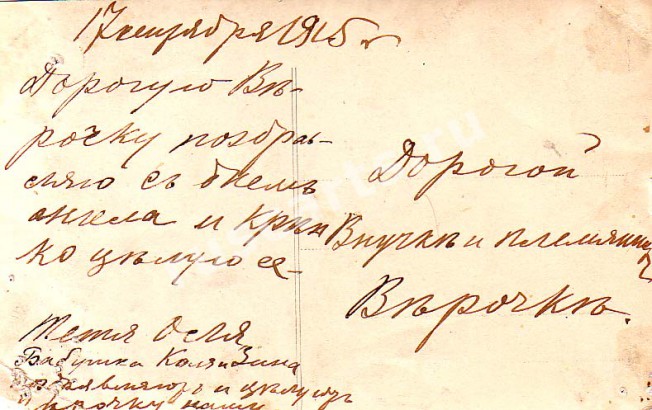 17 сентября 1915 г
Дорогую Вѣ-
рочку поздрав-
ляю съ днемъ
ангела и крѣп
ко цѣлую ее-
Тетя Оля
Бабушка Коля и Зина
поздравляютъ и цѣлуютъ
Вѣрочку нашу
Дорогой
Внучкѣ и племянниц
Вѣрочкѣ.